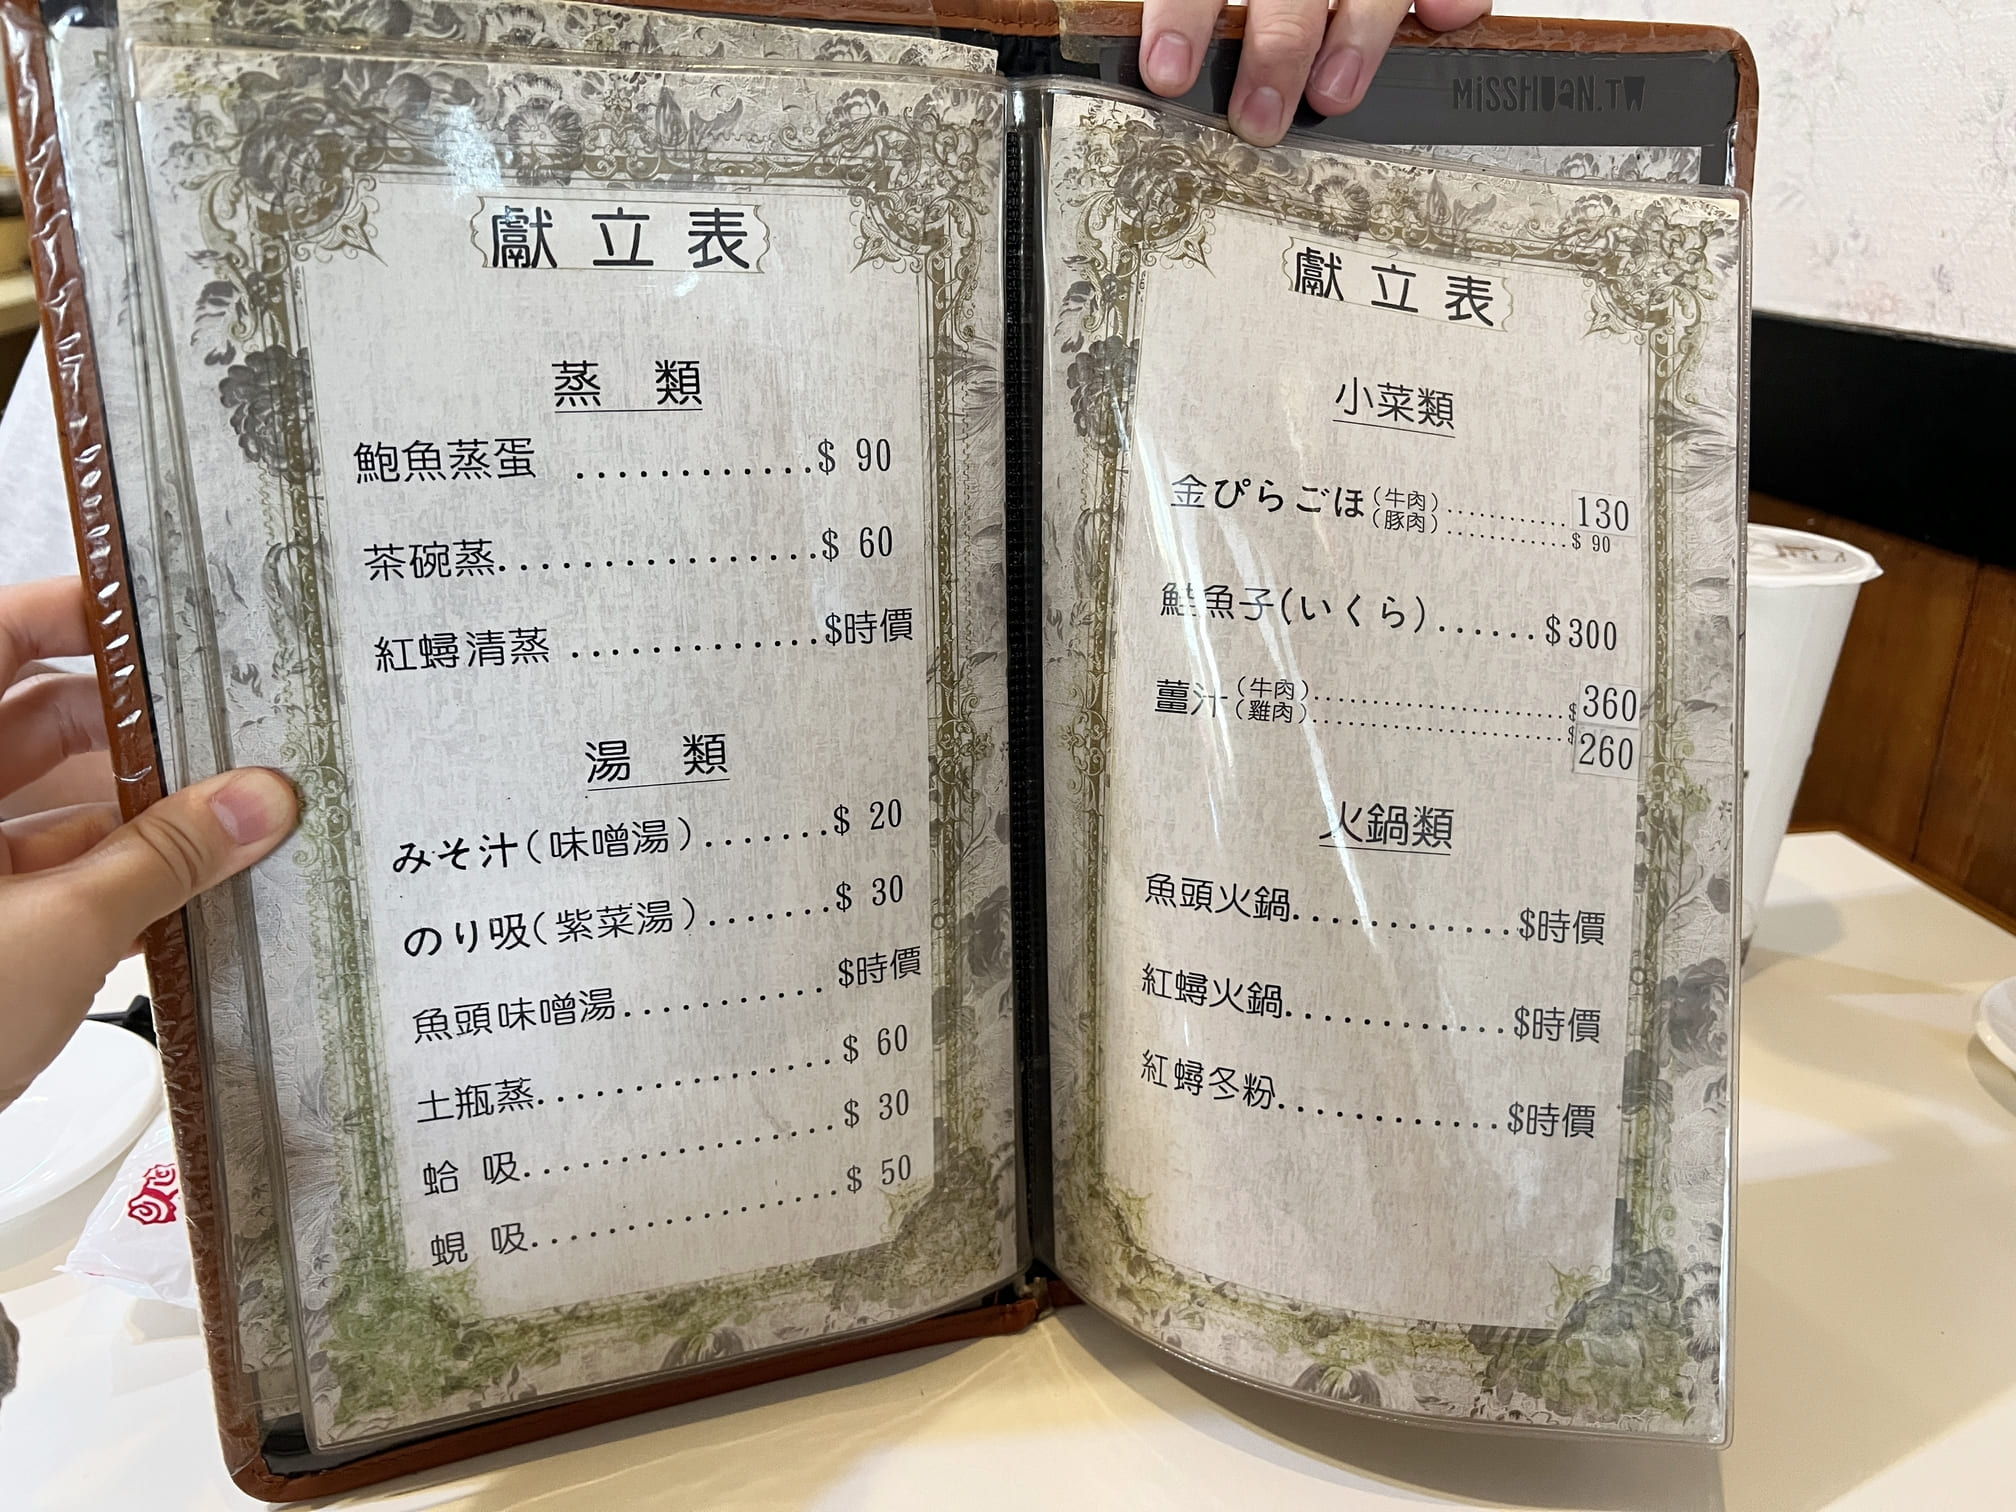 MiSSHUAN.TW
獻立表
蒸 類
鮑魚蒸蛋 ............$ 90
茶碗蒸................$ 60
紅蟳清蒸 .............$時價
湯 類
みそ汁(味噌湯).......$ 20
のり吸(紫菜湯).......$ 30
魚頭味噌湯........... $時價
土瓶蒸............... $ 60
蛤 吸................ $ 30
蜆 吸................ $ 50
獻立表
小菜類
金ぴらごほ(牛肉)............130
(豚肉)............$ 90
鮭魚子(いくら).......$300
薑汁(牛肉)......................$360
(雞肉)......................$260
火鍋類
魚頭火鍋............$時價
紅蟳火鍋............$時價
紅蟳冬粉............$時價